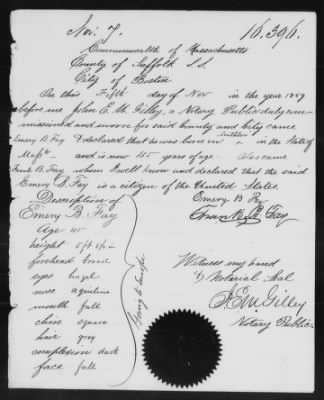 Nov. 7. 16.396.
Commonwealth of Massachusetts
County of Suffolk S.S.
City of Boston
On this Fifth day of Nov in the year 1889
before me John E. M. Gilley, a Notary Public duly com-
missioned and sworn for said County and City came
Emery B Fay & declared that he was born in in the State of
Masstts and is now 45 years of age. Also came
Frank B. Fay whom I well know and declared that the said
Emery B. Fay is a citizen of the United States.
Description of Emery B. Fay
Emery B. Fay Frank B. Fay
Age 45
height 5 ft
forehead broad
eyes hazel
nose aquiline
mouth full
chin square
hair grey
complexion dark
face full
Going to Europe
Witness my hand
& Notarial Seal
J E M Gilley
Notary Public